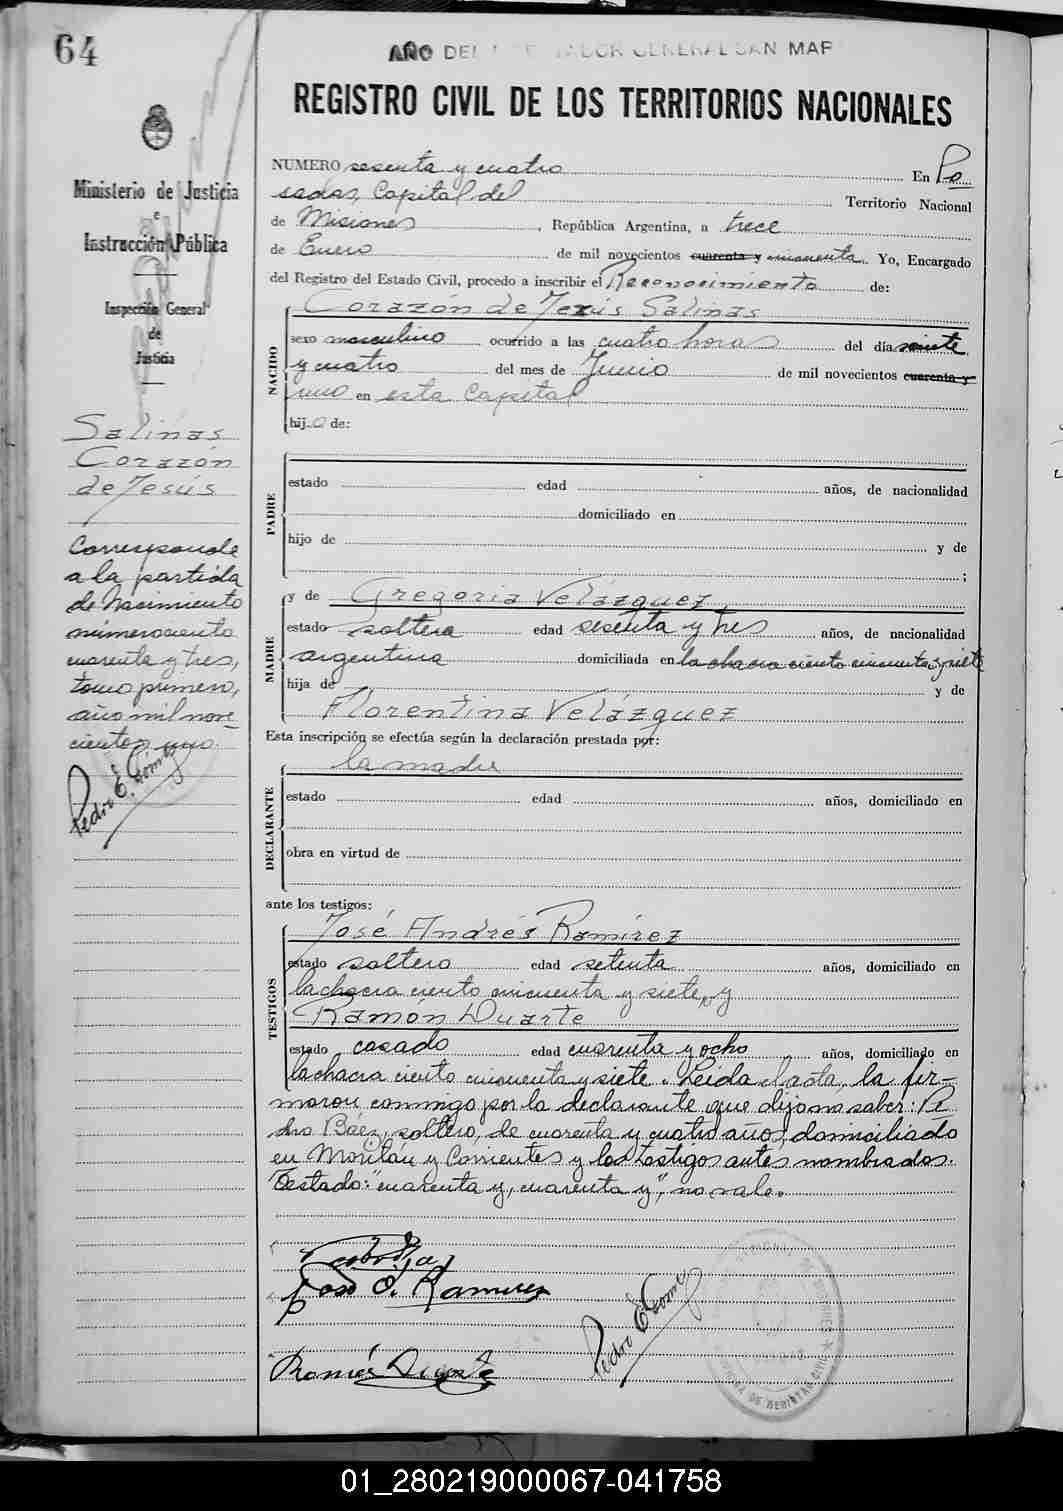 64
AÑO DEL LIBERTADOR GENERAL SAN MAR
REGISTRO CIVIL DE LOS TERRITORIOS NACIONALES
Ministerio de Justicia
e
Instrucción Pública
Inspección General
de
Justicia
Salinas
Corazón
de Jesús
Corresponde
a la partida
de Nacimiento
número ciento
cuarenta y tres,
tomo primero,
año mil nove-
cientos uno.
Pedro E. Gómez
NUMERO sesenta y cuatro En Po
sadas, Capital del Territorio Nacional
de Misiones, República Argentina, a trece
de Enero de mil novecientos cuarenta y cincuenta. Yo, Encargado
del Registro del Estado Civil, procedo a inscribir el Reconocimiento de:
Corazón de Jesús Salinas
NACIDO
sexo masculino ocurrido a las cuatro horas del día veinte
y cuatro del mes de Junio de mil novecientos cuarenta y
uno en esta Capital
hijo de:
PADRE
estado edad años, de nacionalidad
domiciliado en
hijo de y de
;
MADRE
y de Gregoria Velázquez
estado soltera edad sesenta y tres años, de nacionalidad
argentina domiciliada en la chacra ciento cincuenta y siete
hija de y de
Florentina Velázquez
Esta inscripción se efectúa según la declaración prestada por:
la madre
DECLARANTE
estado edad años, domiciliado en
obra en virtud de
ante los testigos:
TESTIGOS
José Andrés Ramírez
estado soltero edad setenta años, domiciliado en
la chacra ciento cincuenta y siete, y
Ramón Duarte
estado casado edad cuarenta y ocho años, domiciliado en
la chacra ciento cincuenta y siete. Leida el acta, la fir-
maron conmigo por la declarante que dijo no saber: Pe
dro Báez, soltero, de cuarenta y cuatro años, domiciliado
en Moritán y Corrientes y los testigos antes nombrados.
Testado: "cuarenta y, cuarenta y", no vale.
José A. Ramirez
Pedro E. Gómez
Ramón Duarte
01_280219000067-041758